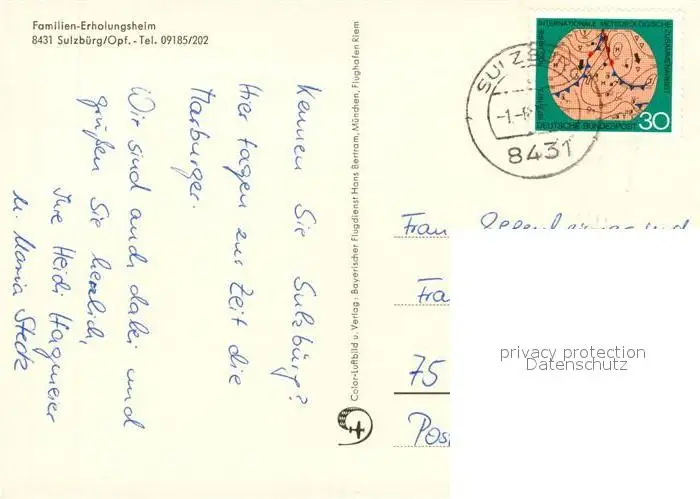 Familien-Erholungsheim
8431 Sulzbürg/Opf. - Tel. 09185/202
Kennen Sie Sulzbürg?
Hier tagen zur Zeit die
Marburger.
Wir sind auch dabei und
grüßen Sie herzlich,
Ihre Heidi Hagmeier
u. Maria Steck
Color-Luftbild u. Verlag: Bayerischer Flugdienst Hans Bertram, München, Flughafen Riem
INTERNATIONALE METEOROLOGISCHE
ZUSAMMENARBEIT
DEUTSCHE BUNDESPOST 30
SULZBÜRG
8431
Frau
Fra
75
Pos
privacy protection
Datenschutz